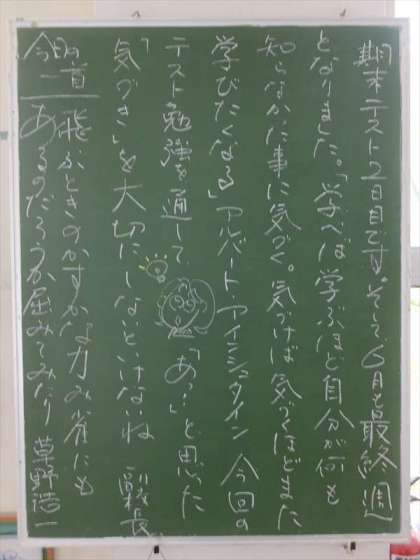 期末テスト2日目です。そして、6月も最終週
となりました。「学べば学ぶほど自分が何も
知らなかった事に気づく。気づけば気づくほどまた
学びたくなる」アルバート・アインシュタイン 今回の
テスト勉強を通して「あっ!」と思った
「気づき」を大切にしないといけないね 副校長
今朝の一首 飛ぶときのかすかな力み雀にも
あるのだろうか屈みてみたり 草野浩一